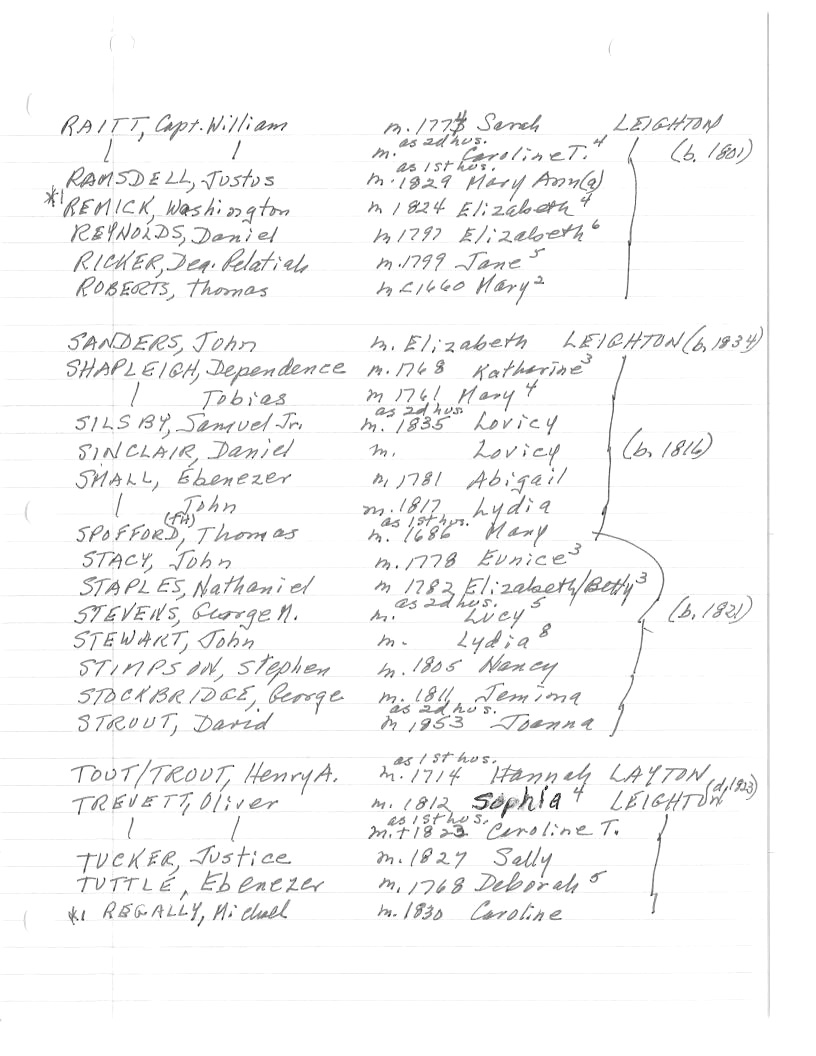 RAITT, Capt. William m. 1774 Sarah LEIGHTON
as 2d hus.
| | m. Caroline T.⁴ | (b. 1801)
as 1st hus.
RAMSDELL, Justus m. 1829 Mary Ann(a)
*1
REMICK, Washington m 1824 Elizabeth⁴
REYNOLDS, Daniel m 1797 Elizabeth⁶
RICKER, Dea. Pelatiah m. 1799 Jane⁵
ROBERTS, Thomas m <1660 Mary²
SANDERS, John m. Elizabeth LEIGHTON (b. 1834)
SHAPLEIGH, Dependence m. 1768 Katharine³
| Tobias m 1761 Mary⁴
as 2d hus.
SILSBY, Samuel Jr. m. 1835 Lovicy
SINCLAIR, Daniel m. Lovicy (b. 1816)
SMALL, Ebenezer m, 1781 Abigail
| John m. 1817 Lydia
(FH) as 1st hus.
SPOFFORD, Thomas m. 1686 Mary
STACY, John m. 1778 Eunice³
STAPLES, Nathaniel m 1782 Elizabeth/Betty³
as 2d hus.
STEVENS, George M. m. Lucy⁵ (b. 1821)
STEWART, John m. Lydia⁸
STIMPSON, Stephen m. 1805 Nancy
STOCKBRIDGE, George m. 1811, Jemima
as 2d hus.
STROUT, David m 1853 Joanna
as 1st hus.
TOUT/TROUT, Henry A. m. 1714 Hannah LAYTON
(d. 1823)
TREVETT, Oliver m. 1812 Sophia⁴ LEIGHTON
as 1st hus.
| | m. +1823 Caroline T.
TUCKER, Justice m. 1827 Sally
TUTTLE, Ebenezer m, 1768 Deborah⁵
*1 REGALLY, Michael m. 1830 Caroline